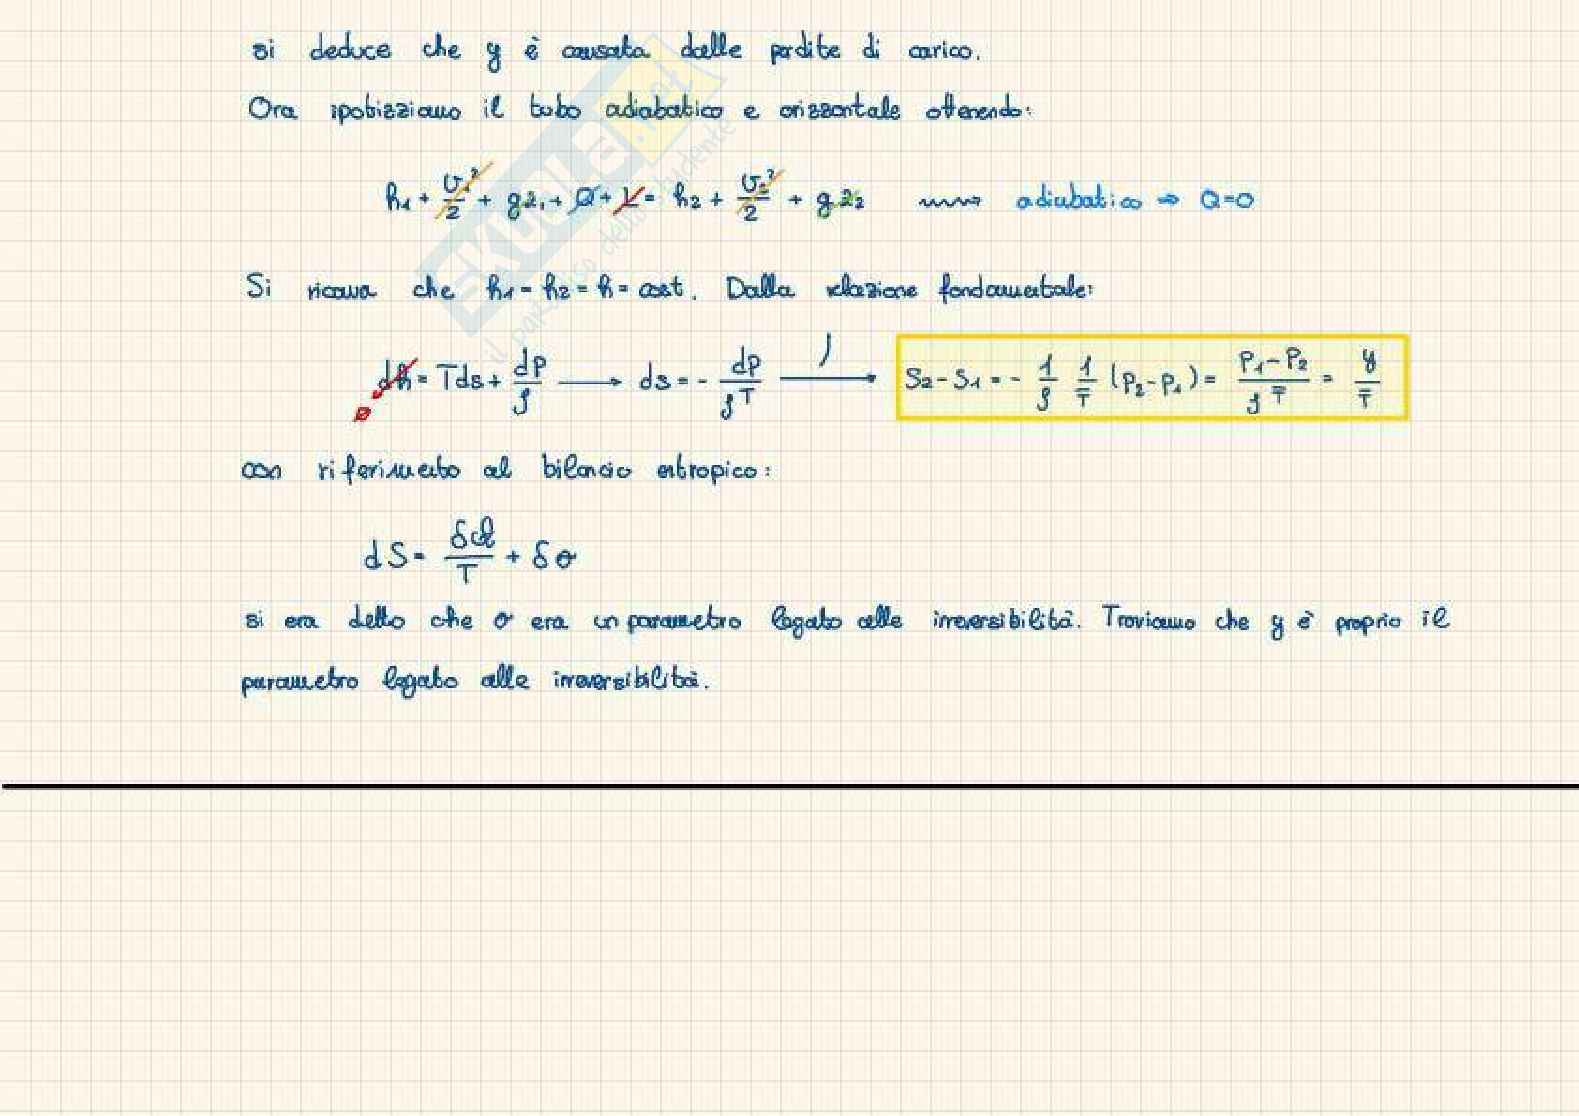 si deduce che y è causata dalle perdite di carico.
Ora ipotizziamo il tubo adiabatico e orizzontale ottenendo:
h₁ + v₁²/2 + gz₁ + Q + L = h₂ + v₂²/2 + gz₂ adiabatico ⇒ Q=0
Si ricava che h₁ = h₂ = h = cost. Dalla relazione fondamentale:
dh = Tds + dp/ρ → ds = - dp/ρT ∫→ S₂-S₁ = - 1/ρ 1/T̄ (p₂-p₁) = P₁-P₂/ρT̄ = y/T̄
0
con riferimento al bilancio entropico:
dS = δQ/T + δσ
si era detto che σ era un parametro legato alle irreversibilità. Troviamo che y è proprio il
parametro legato alle irreversibilità.
SKUOLA.net
il paradiso dello studente